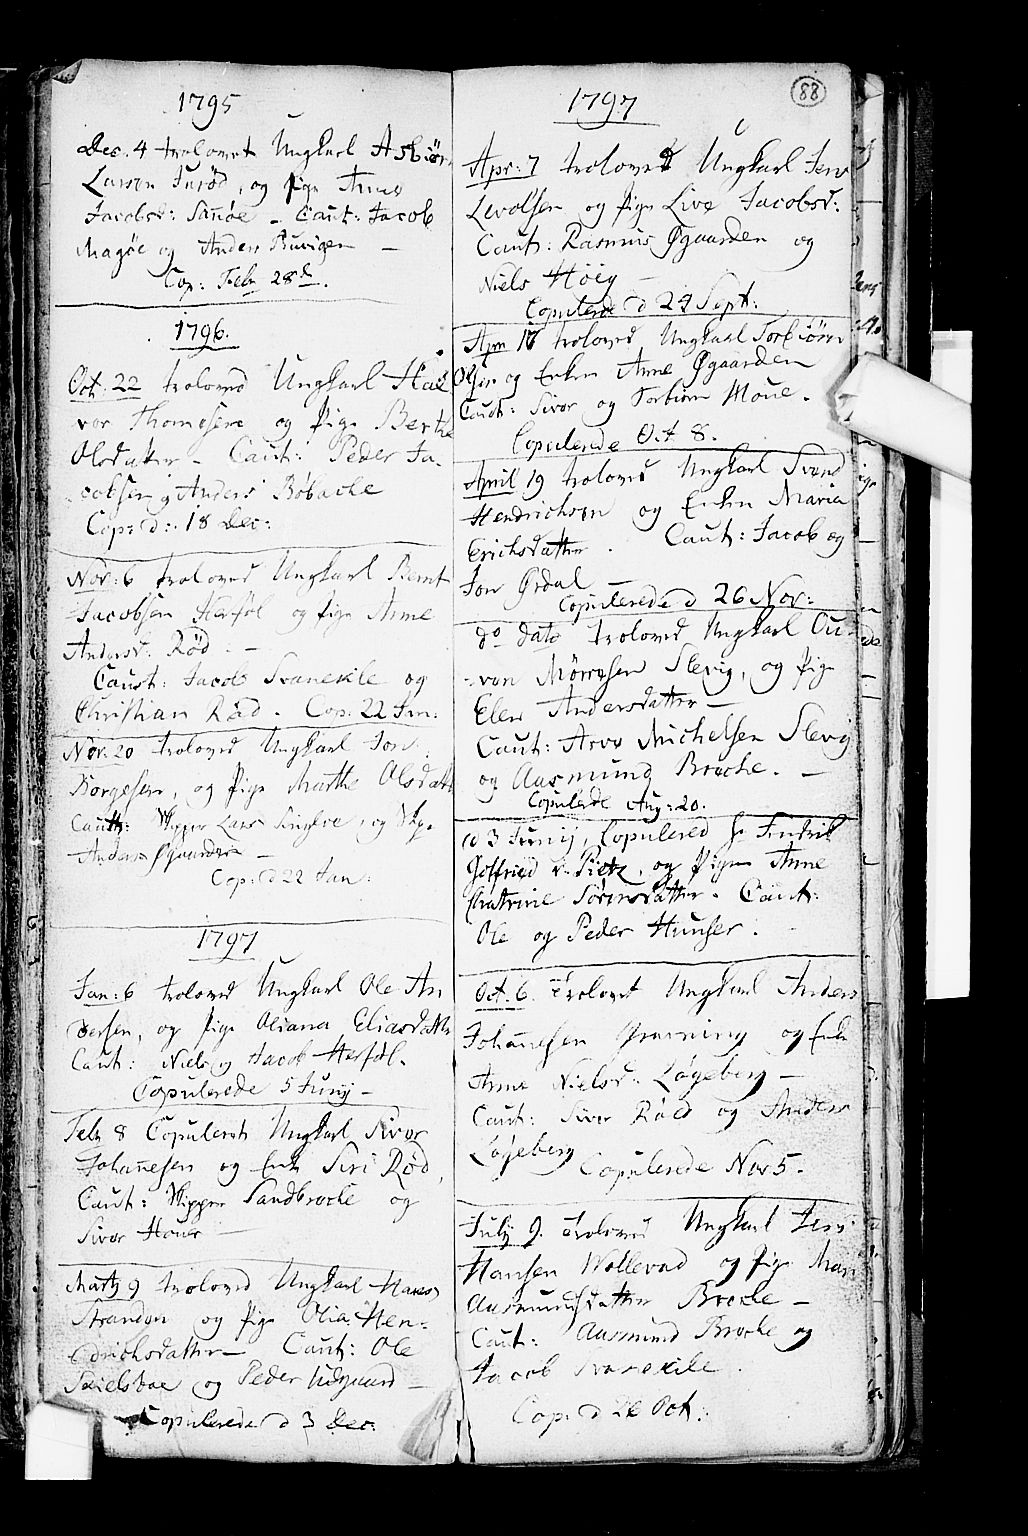 1795
Dec. 4 troloved Ungkarl Asbiørn
Larsen Furød, og Pige Anne
Jacobsd: Sanøe - Caut: Jacob
Magøe og Anders Buvigen -
Cop: Feb 28d.
1796.
Oct: 22 troloved Ungkarl Hal
vor Thomesen og Pige Berthe
Olsdatter - Caut: Peder Ja-
cobsen og Anders Bøbacke
Cop: d: 18 Dec:
Nov: 6 troloved Ungkarl Bernt
Jacobsen Herføl og Pige Anne
Andersd: Rød. -
Caut: Jacob Svanekile og
Christian Rød. Cop: 22 Jan:
Nov: 20 troloved Ungkarl Jon
Borgesen, og Pige Marthe Olsdatt
Cautt: Skipper Lars og Skip
Anders Øgaarden -
Cop: d 22 Jan:
1797
Jan: 6 troloved Ungkarl Ole An
dersen, og Pige Oliana Eliasdatt
Caut: Niels og Jacob Herføl.
Copulerede 5 Junij -
Feb 8 Copuleret Ungkarl Siver
Johannesen og Enke Siri Rød,
Caut: Skipper Sandbrocke og
Siver Houe -
Martz 9 troloved Ungkarl Hans
Stranden og Pige Olia Hen-
drichsdatter - Caut: Ole
Skielsboe og Peder Udgaard -
Copulerede d 3 Dec:
88
1797
Apr: 7 troloved Ungkarl Jens
Levolsen og Pige Live Jacobsd:
Caut: Rasmus Øgaarden og
Niels Høeg -
Copulerede d 24 Sept:
Apr 18 troloved Ungkarl Torbiørn
Olsen og Enken Anne Øgaarden
Caut: Siver og Torbiørn Houe.
Copulerede Oct 8.
April 19 troloved Ungkarl Svend
Hendrichsen og Enken Maria
Erichsdatter. Caut: Jacob og
Jon Ørdal -
Copulerede d 26 Nov:
do dato troloved Ungkarl Ou-
ven Mørresen Slevig, og Pige
Elen Andersdatter -
Caut: Arve Michelsen Slevig
og Aasmund Brocke. -
Copulerede Aug: 20.
d 3 Junij, Copulered Hr Fredrik
Gotfried v. Pietz, og Pigen Anne
Chatrine Sørensdatter. Caut:
Ole og Peder Hunser.
Oct. 6. troloved Ungkarl Anders
Johannesen Grønning og Enke
Anne Nielsd: Løgeberg -
Caut: Siver Røed og Anders
Løgeberg
Copulerede Nov 5.
July 9. troloved Ungkarl Jens
Hansen Wollevad og Pige Mari
Aasmundsdatter Brocke -
Caut: Aasmund Brocke og
Jacob Svanekile.
Cop: d 26 Oct: